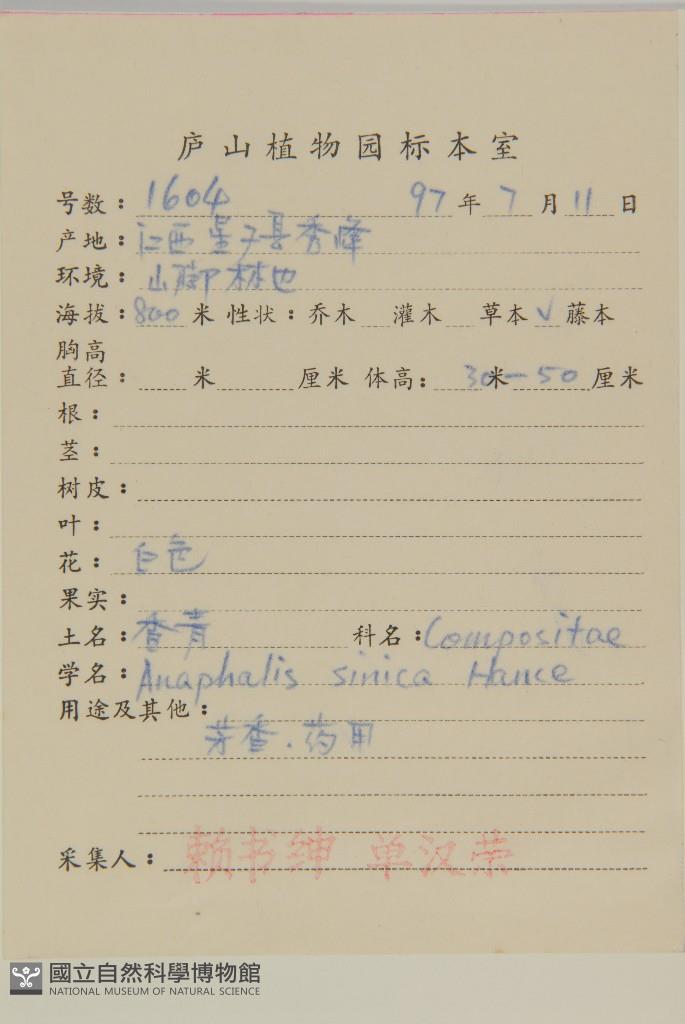 庐山植物园标本室
号数：1604 97年7月11日
产地：江西星子县秀峰
环境：山脚林地
海拔：800米 性状：乔木 灌木 草本√藤本
胸高
直径： 米 厘米 体高： 30米—50厘米
根：
茎：
树皮：
叶：
花：白色
果实：
土名：香青 科名：Compositae
学名：Anaphalis sinica Hance
用途及其他：
芳香．药用
采集人：赖书绅 单汉荣
國立自然科學博物館
NATIONAL MUSEUM OF NATURAL SCIENCE